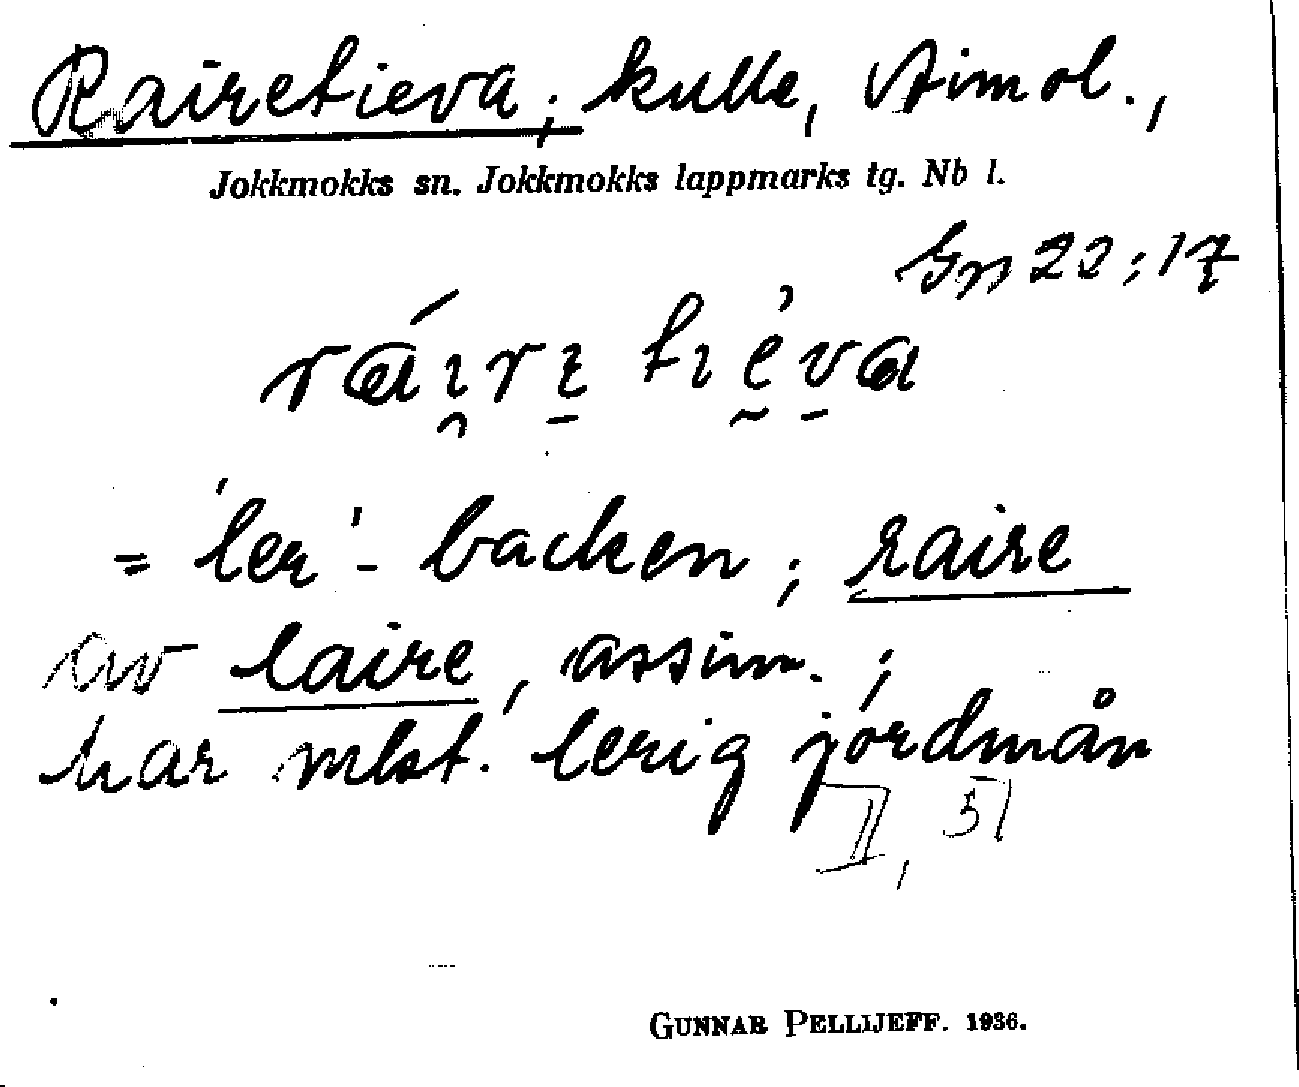 Rairetieva; kulle, Aimol.,
Jokkmokks sn. Jokkmokks lappmarks tg. Nb l.
Gn 22:17
= 'ler'-backen; raire
av laire, assim.;
har mkt. lerig jordmån
II, 51
GUNNAR PELLIJEFF. 1936.